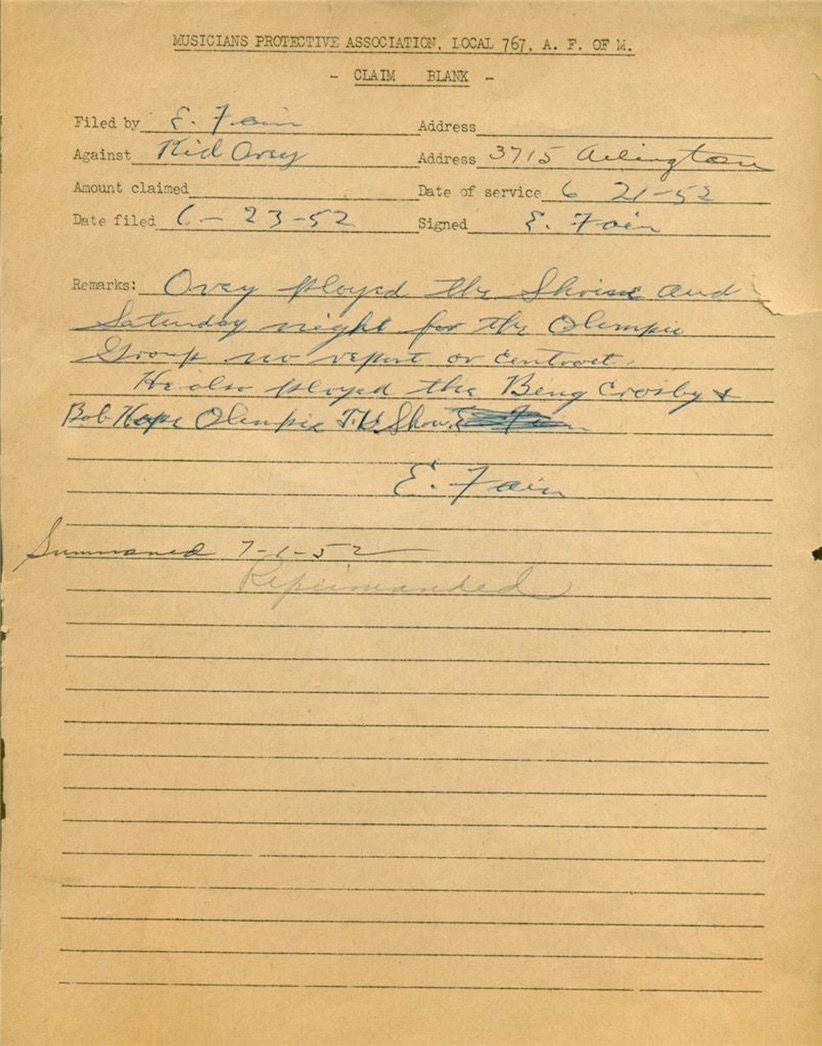 MUSICIANS PROTECTIVE ASSOCIATION, LOCAL 767, A. F. OF M.
- CLAIM BLANK -
Filed by E. Fain Address
Against Kid Orey Address 3715 Arlington
Amount claimed Date of service 6 21-52
Date filed 6-23-52 Signed E. Fain
Remarks: Orey played the Shrine and
Saturday night for the Olempic
Group no report or contract.
He also played the Bing Crosby &
Bob Hope Olempic T.V. Show.
E. Fain
Summoned 7-1-52
Reprimanded